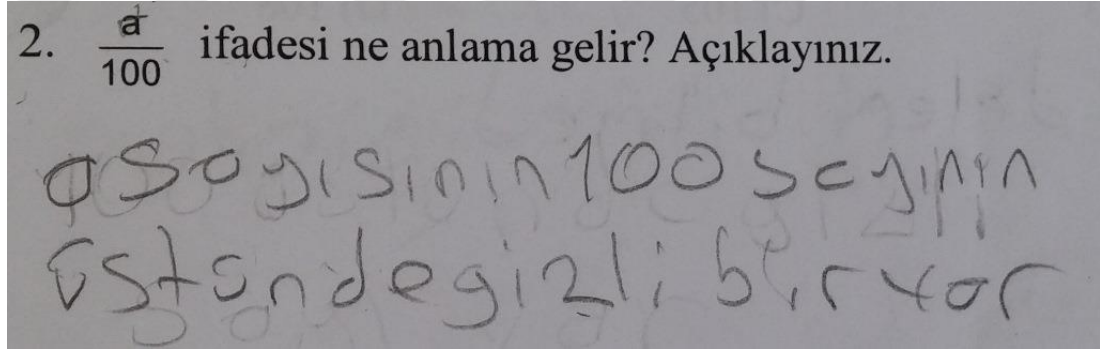 2. a/100 ifadesi ne anlama gelir? Açıklayınız.
a sayısının 100 seyinin
üstünde gizli bir var